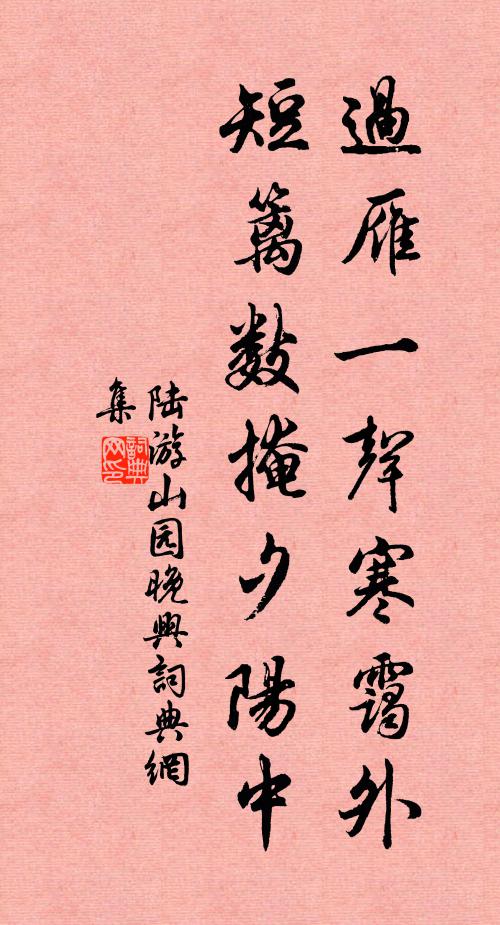 過雁一聲寒靄外
短籬數掩夕陽中
陆游山园晚興詞典網
集
詞典
网印